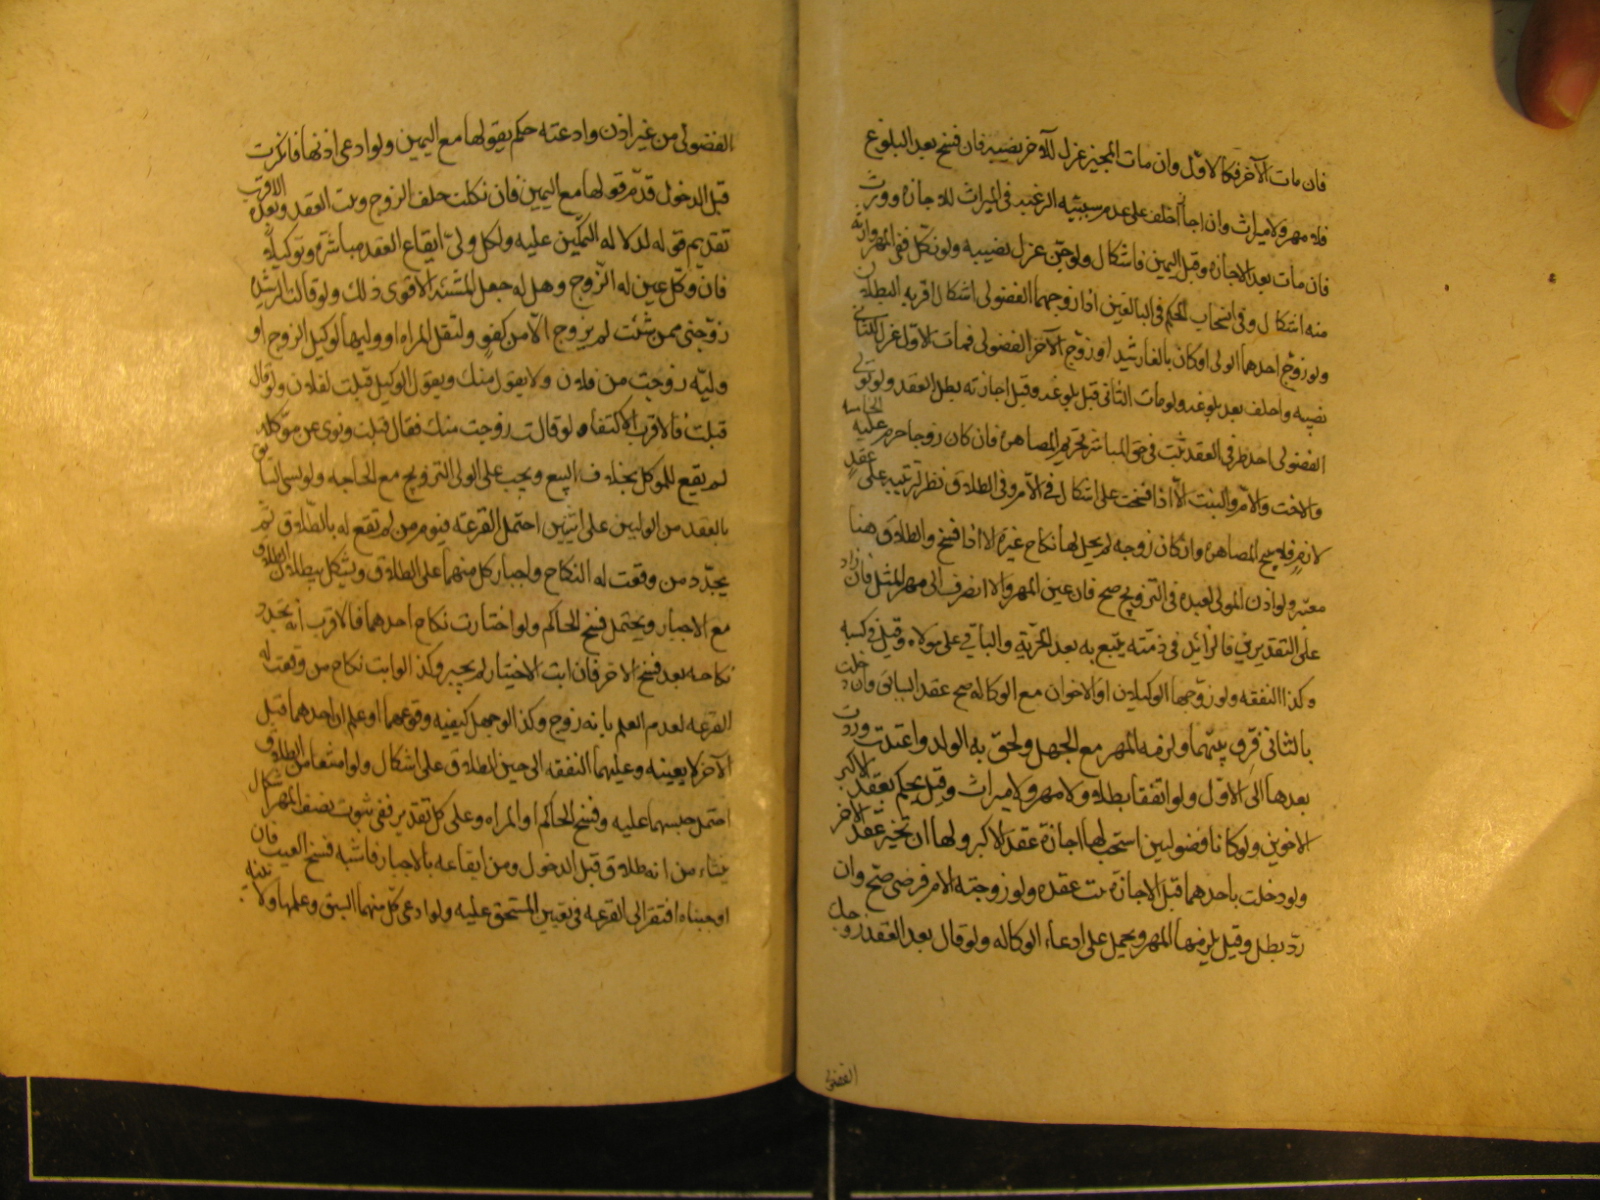 فان مات الآخر فكالاول وان مات المجيز عزل للآخر نصيبه فان فسخ بعد البلوغ
فلا مهر ولا ميراث وان اجاز احلف على عدم سببيه الرغبه في الميراث للاجازه وورث
فان مات بعد الاجازه وقبل اليمين فاشكال ولو جن عزل نصيبه ولو نكل ففي المهر وارثه
منه اشكال وفي انسحاب الحكم في البالغين اذا زوجهما الفضولى اشكال اقربه البطلان
ولو زوج احدهما الولى او كان بالغا رشيدا وزوج الآخر الفضولى فمات الاول عزل للثاني
نصيبه واحلف بعد بلوغه ولو مات الثاني قبل بلوغه وقبل اجازته بطل العقد ولو تولى
الفضولى احد طرفي العقد ثبت في حق المباشر تحريم المصاهره فان كان زوجا حرم عليه الخامسه
والاخت والام والبنت الا اذا فسخت على اشكال في الام وفي الطلاق نظر لترتبه على عقد
لازم فلا يبيح المصاهره وان كان زوجه لم يحل لها نكاح غيره الا اذا فسخ والطلاق هنا
معتبر ولو اذن المولى لعبده في التزويج صح فان عين المهر والا انصرف الى مهر المثل فان زاد
على التقديرين فالزائد في ذمته يتبع به بعد الحرية والباقي على مولاه وقيل في كسبه
وكذا النفقه ولو زوجها الوكيلان او الاخوان مع الوكاله صح عقد السابق وان دخلت
بالثاني فرق بينهما ولزمه المهر مع الجهل ولحق به الولد واعتدت وردت
بعدها الى الاول ولو اتفقا بطلا ولا مهر ولا ميراث وقيل يحكم بعقد الاكبر
الاخوين ولو كانا فضوليين استحب لها اجازة عقد الاكبر ولها ان تخير عقد الآخر
ولو دخلت باحدهما قبل الاجازة ثبت عقده ولو زوجته الام فرضى صح وان
رد بطل وقيل يلزمها المهر ويحمل على ادعاء الوكاله ولو قال بعد العقد زوجك
الفضولى
الفضولى من غير اذن وادعته حكم بقولها مع اليمين ولو ادعى اذنها فانكرت
قبل الدخول قدم قولها مع اليمين فان نكلت حلف الزوج وثبت العقد وبعده الاقرب
تقديم قوله لدلاله التمكين عليه ولكل ولى ايقاع العقد مباشرة وتوكيلا
فان وكل عين له الزوج وهل له جعل المشيئه الاقوى ذلك ولو قالت الرشيده
زوجني ممن شئت لم يزوج الا من كفو ولتقل المراه او وليها لوكيل الزوج او
وليه زوجت من فلان ولا يقول منك ويقول الوكيل قبلت لفلان ولو قال
قبلت فالاقرب الاكتفاء ولو قالت زوجت منك فقال قبلت ونوى عن موكله
لم يقع للموكل بخلاف البيع ويجب على الولى التزويج مع الحاجه ولو نسى السابق
بالعقد من الوليين على اثنين احتمل القرعه فيؤمر من لم تقع له بالطلاق ثم
يجدد من وقعت له النكاح واجبار كل منهما على الطلاق ويشكل ببطلان الطلاق
مع الاجبار ويحتمل فسخ الحاكم ولو اختارت نكاح احدهما فالاقرب انه يجدد
نكاحه بعد فسخ الاخر فان ابت الاختيار لم يجبر وكذا لو ابت نكاح من وقعت له
القرعه لعدم العلم بانه زوج وكذا لو جهل كيفيه وقوعهما او علم ان احدهما قبل
الآخر لا بعينه وعليهما النفقه الى حين الطلاق على اشكال ولو امتنعا من الطلاق
احتمل حبسهما عليه وفسخ الحاكم او المراه وعلى كل تقدير ففي ثبوت نصف المهر اشكال
ينشاء من انه طلاق قبل الدخول ومن ايقاعه بالاجبار فاشبه فسخ العيب فان
اوجبناه افتقر الى القرعه في تعيين المستحق عليه ولو ادعى كل منهما السبق وعلمها ولا بينه